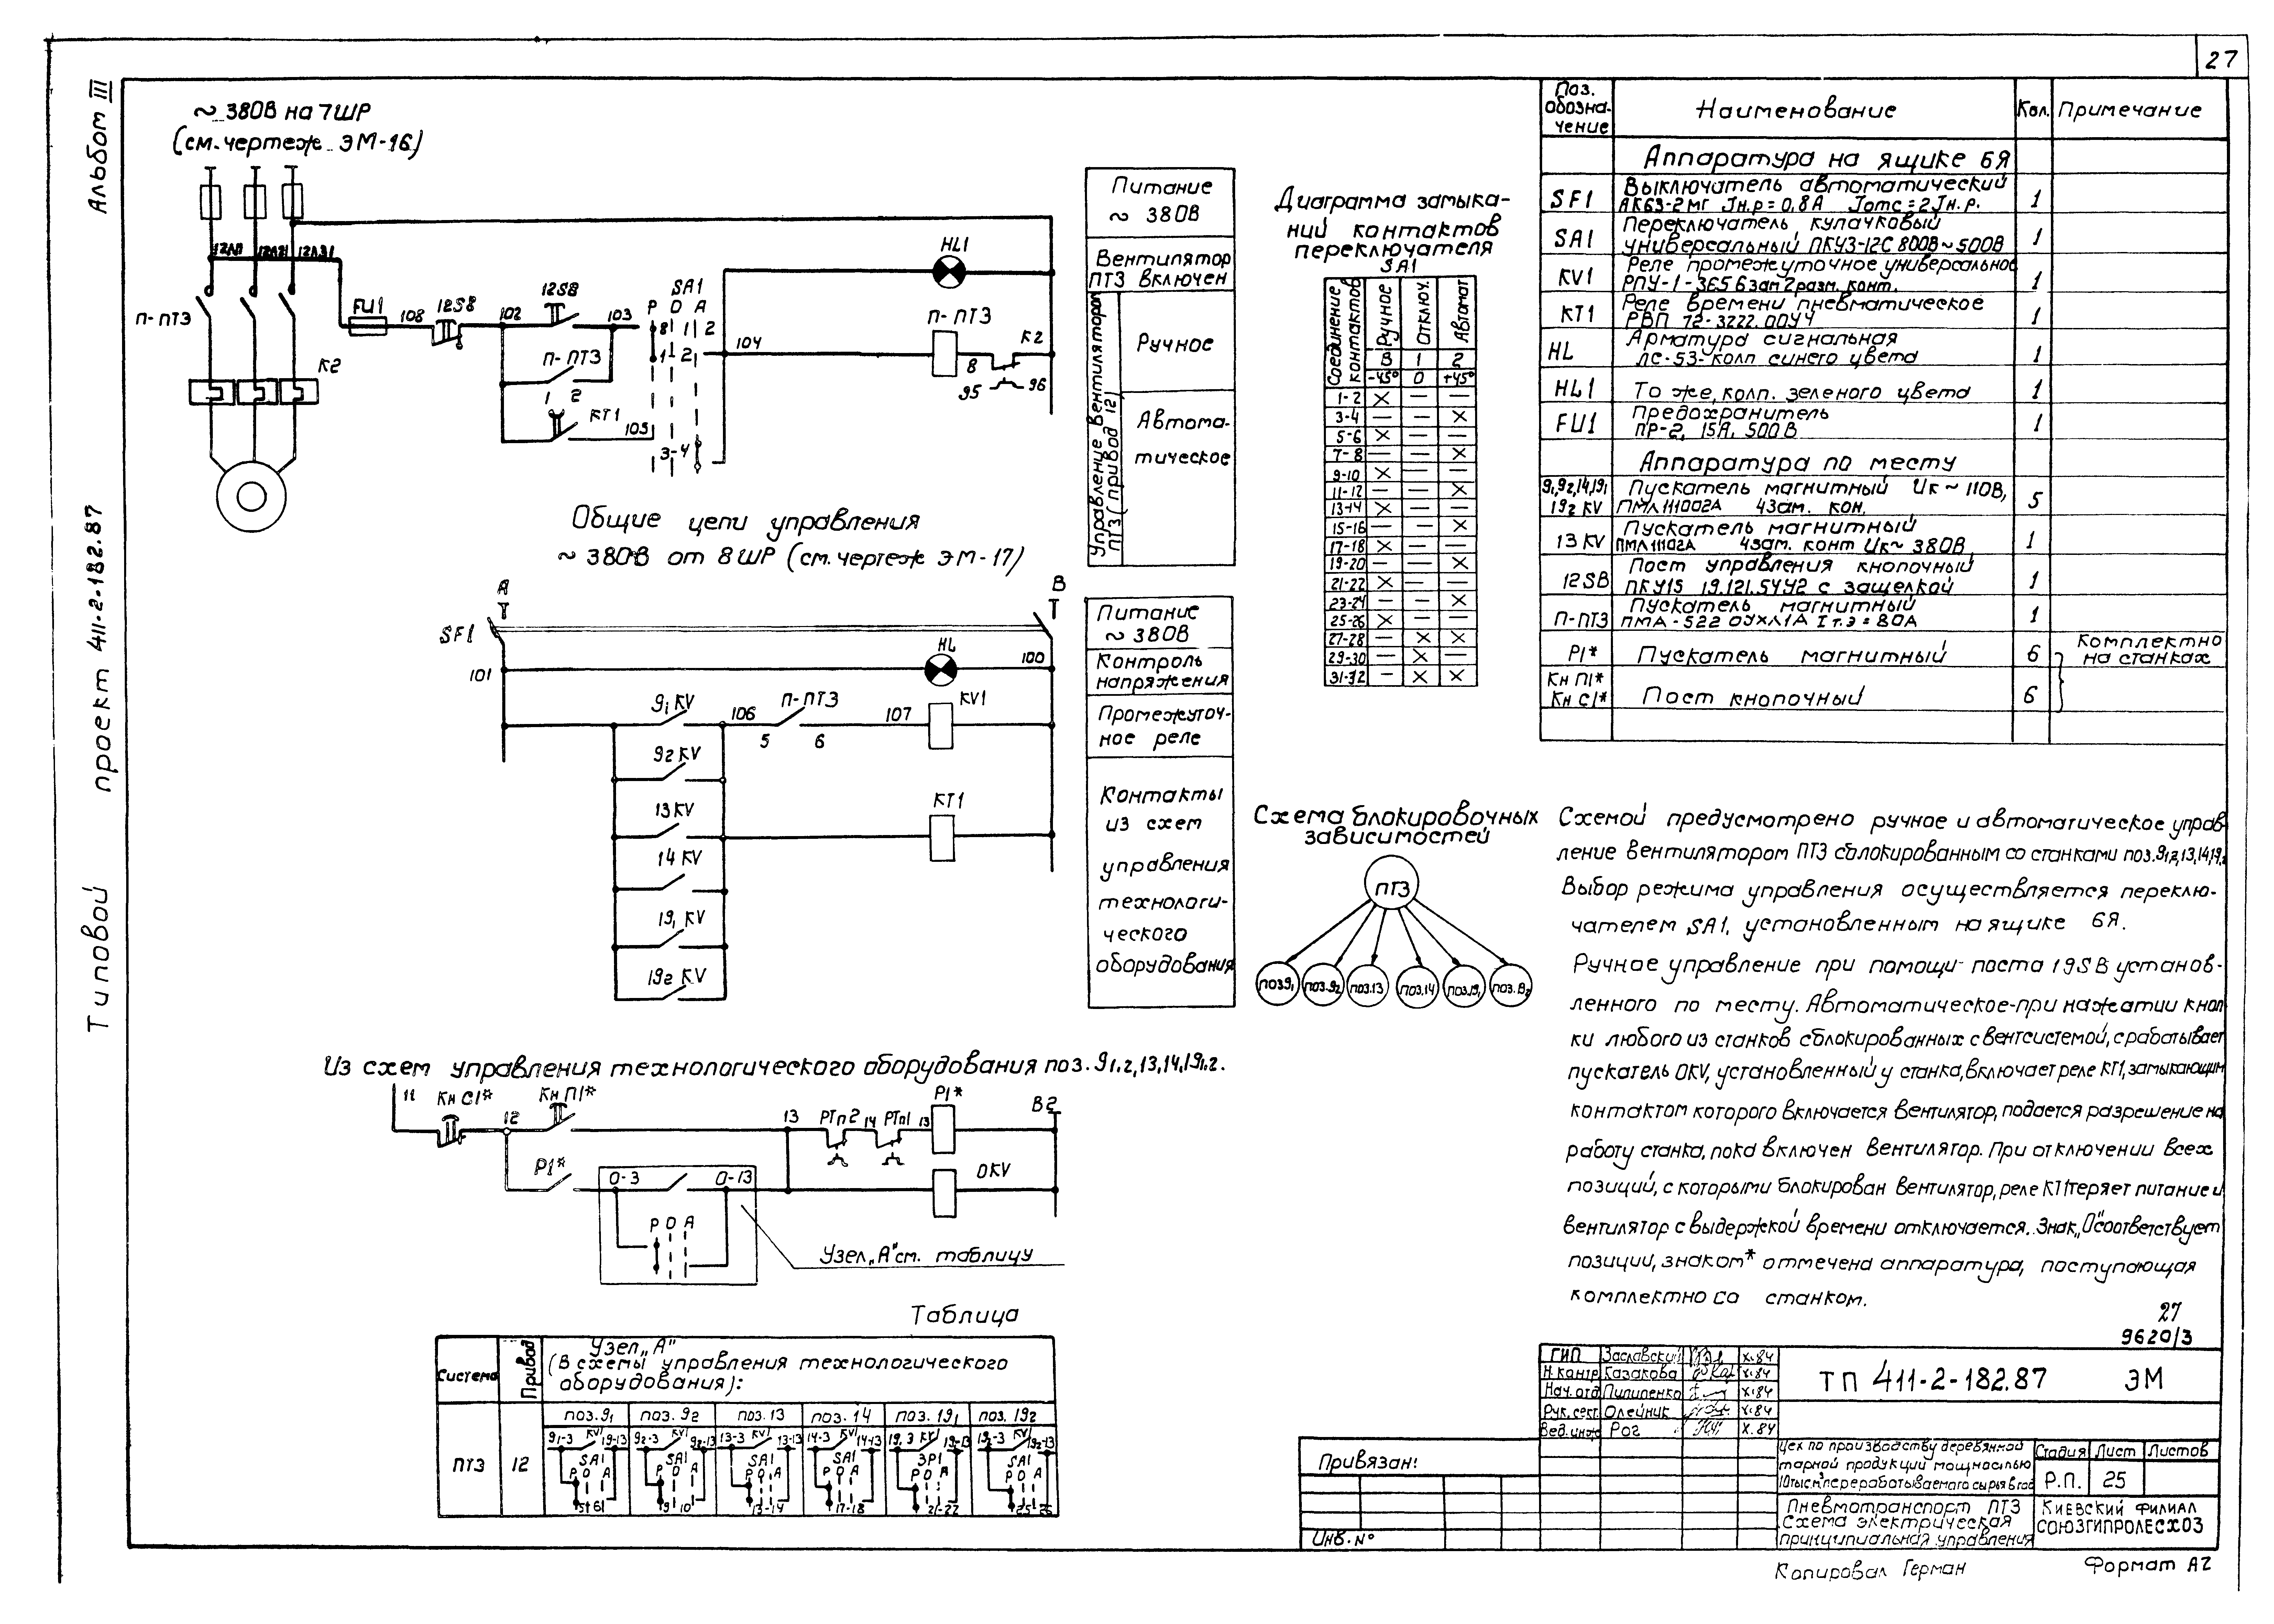 27
Альбом III
Типовой проект 411-2-182.87
~ 380В на 7ШР
(см. чертеж ЭМ-16)
12Л11 12Л21 12Л31
П-ПТЗ
К2
FU1
108
12SB
102
12SB
103
П-ПТЗ
1 2
КТ1
105
SA1
Р О А
8 1 2
1 2
3-4
104
HL1
П-ПТЗ
8
К2
95
96
Питание
~ 380В
Вентилятор
ПТЗ включен
Управление вентилятором
ПТЗ (привод 12)
Ручное
Автома-
тическое
Общие цепи управления
~ 380В от 8ШР (см. чертеж ЭМ-17)
А
В
SF1
101
HL
100
9₁ KV
106
П-ПТЗ
5 6
107
KV1
9₂ KV
13 KV
КТ1
14 KV
19₁ KV
19₂ KV
Питание
~ 380В
Контроль
напряжения
Промежуточ-
ное реле
Контакты
из схем
управления
технологи-
ческого
оборудования
Диаграмма замыка-
ний контактов
переключателя
SA1
Соединение контактов
Ручное
Отключ.
Автомат
В 1 2
-45° 0 +45°
1-2 × — —
3-4 — — ×
5-6 × — —
7-8 — — ×
9-10 × — —
11-12 — — ×
13-14 × — —
15-16 — — ×
17-18 × — —
19-20 — — ×
21-22 × — —
23-24 — — ×
25-26 × — —
27-28 — × ×
29-30 — × —
31-32 — × ×
Схема блокировочных
зависимостей
ПТЗ
поз.9₁ поз.9₂ поз.13 поз.14 поз.19₁
Поз. обозна-чение Наименование Кол. Примечание
Аппаратура на ящике 6Я
SF1 Выключатель автоматический
АК63-2МГ Jн.р = 0,8А Jотс = 2Jн.р. 1
SA1 Переключатель кулачковый
универсальный ПКУ3-12С 800В~500В 1
KV1 Реле промежуточное универсальное
РПУ-1-365 6 зам 2 разм. конт. 1
КТ1 Реле времени пневматическое
РВП 72-3222.00У4 1
HL Арматура сигнальная
ЛС-53-колп синего цвета 1
HL1 То же, колп. зеленого цвета 1
FU1 Предохранитель
ПР-2, 15А, 500В 1
Аппаратура по месту
9₁,9₂,14,19₁
19₂ KV Пускатель магнитный Uк ~ 110В,
ПМЛ111002А 4зам. кон. 5
13 KV Пускатель магнитный
ПМЛ11102А 4зам. конт Uк~ 380В, 1
12SB Пост управления кнопочный
ПКУ15 19.121.54У2 с защелкой 1
П-ПТЗ Пускатель магнитный
ПМА-522 ОУХЛ1А Iт.э = 80А 1
Р1* Пускатель магнитный 6 Комплектно
на станках
Кн П1*
Кн С1* Пост кнопочный 6
Схемой предусмотрено ручное и автоматическое управ-
ление вентилятором ПТЗ сблокированным со станками поз.9₁,₂,13,14,19₁,₂
Выбор режима управления осуществляется переклю-
чателем SA1, установленным на ящике 6Я.
Ручное управление при помощи поста 19SB установ-
ленного по месту. Автоматическое-при нажатии кноп
ки любого из станков сблокированных с вентсистемой, срабатывает
пускатель ОKV, установленный у станка, включает реле КТ1, замыкающим
контактом которого включается вентилятор, подается разрешение на
работу станка, пока включен вентилятор. При отключении всех
позиций, с которыми блокирован вентилятор, реле КТ1 теряет питание и
вентилятор с выдержкой времени отключается. Знак „О" соответствует
позиции, знаком * отмечена аппаратура, поступающая
комплектно со станком.
Из схем управления технологического оборудования поз. 9₁,₂,13,14,19₁,₂.
11
Кн С1*
12
Кн П1*
13
РТп2
14
РТп1
13
Р1*
В2
Р1*
0-3
0-13
Р О А
ОKV
Узел „А" см. таблицу
Таблица
Система
Привод
Узел „А"
(В схемы управления технологического
оборудования):
поз.9₁ поз. 9₂ поз. 13 поз. 14 поз. 19₁ поз. 19₂
ПТЗ 12
9₁-3 KV 19-13 SA1 Р О А 5÷6
9₂-3 KV 9₂-13 SA1 Р О А 9-10
13-3 KV 13-13 SA1 Р О А 13-14
14-3 KV 14-13 SA1 Р О А 17-18
19.3 KV 19-13 ЗР1 Р О А 21-22
19₂-3 KV 19₂-13 SA1 Р О А 25-26
27
9620/3
ГИП Заславский х.84
Н.контр Казакова х.84
Нач. отд Пилипенко х.84
Рук. сект. Олейник х.84
Вед.инж Рог х.84
ТП 411-2-182.87 ЭМ
Цех по производству деревянной
тарной продукции мощностью
10тыс.м³ перерабатываемого сырья в год
Стадия Лист Листов
Р.П. 25
Пневмотранспорт ПТЗ
Схема электрическая
принципиальная управления
КИЕВСКИЙ ФИЛИАЛ
СОЮЗГИПРОЛЕСХОЗ
Привязан:
Инв.N°
Копировал Герман
Формат А2